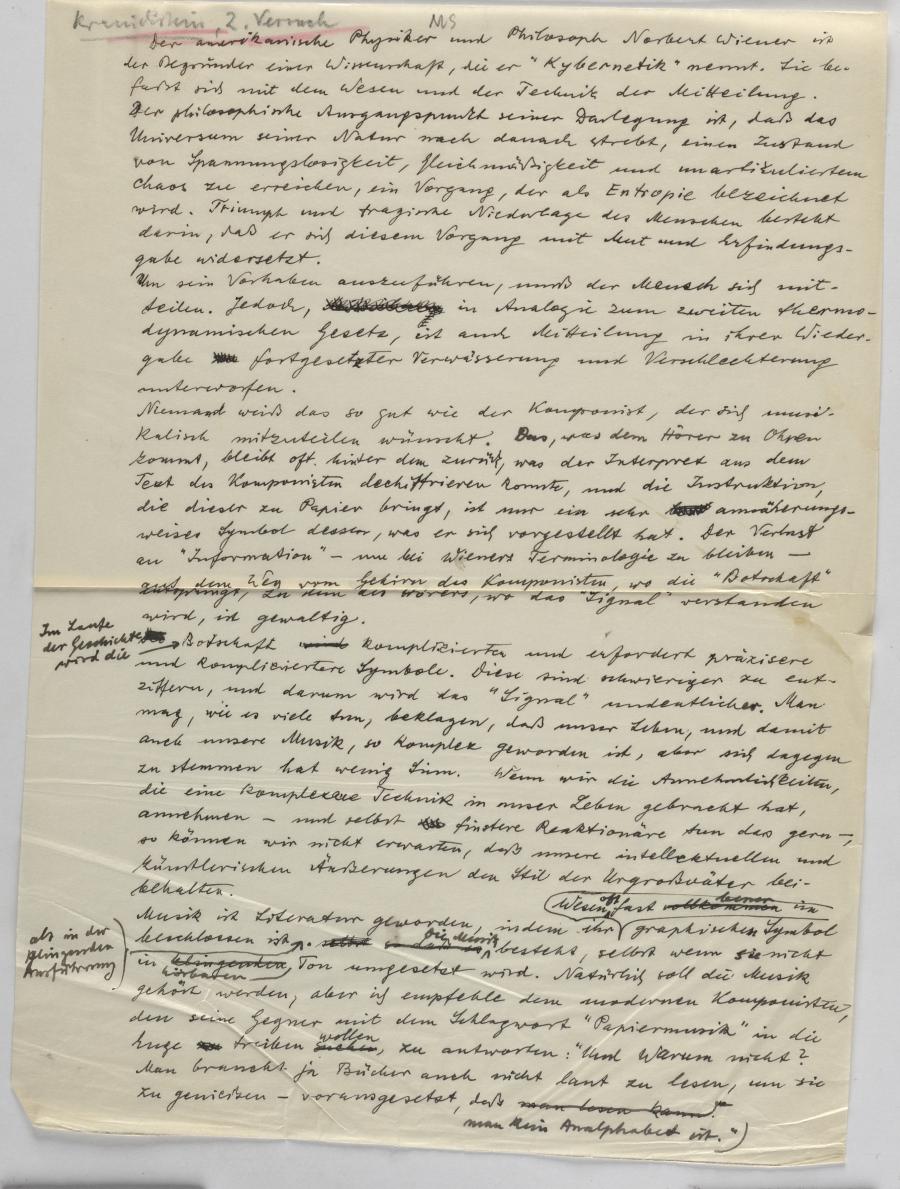 Kranichstein, 2. Versuch
MS
Der amerikanische Physiker und Philosoph Norbert Wiener ist
der Begründer einer Wissenschaft, die er "Kybernetik" nennt. Sie be-
faßt sich mit dem Wesen und der Technik der Mitteilung.
Der philosophische Ausgangspunkt seiner Darlegung ist, daß das
Universum seiner Natur nach danach strebt, einen Zustand
von Spannungslosigkeit, Gleichmäßigkeit und unartikuliertem
Chaos zu erreichen, ein Vorgang, der als Entropie bezeichnet
wird. Triumph und tragische Niederlage des Menschen besteht
darin, daß er sich diesem Vorgang mit Mut und Erfindungs-
gabe widersetzt.
Um sein Vorhaben auszuführen, muß der Mensch sich mit-
teilen. Jedoch, in Analogie zum zweiten thermo-
dynamischen Gesetz, ist auch Mitteilung in ihrer Wieder-
gabe fortgesetzter Verwässerung und Verschlechterung
unterworfen.
Niemand weiß das so gut wie der Komponist, der sich musi-
kalisch mitzuteilen wünscht. Das, was dem Hörer zu Ohren
kommt, bleibt oft hinter dem zurück, was der Interpret aus dem
Text des Komponisten dechiffrieren konnte, und die Instruktion,
die dieser zu Papier bringt, ist nur ein sehr annäherungs-
weises Symbol dessen, was er sich vorgestellt hat. Der Verlust
an "Information" – um bei Wieners Terminologie zu bleiben –
auf dem Weg vom Gehirn des Komponisten, wo die "Botschaft"
entspringt, zu dem des Hörers, wo das "Signal" verstanden
wird, ist gewaltig.
Im Laufe
der Geschichte
wird die
Botschaft wird komplizierter und erfordert präzisere
und kompliziertere Symbole. Diese sind schwieriger zu ent-
ziffern, und darum wird das "Signal" undeutlicher. Man
mag, wie es viele tun, beklagen, daß unser Leben, und damit
auch unsere Musik, so komplex geworden ist, aber sich dagegen
zu stemmen hat wenig Sinn. Wenn wir die Annehmlichkeiten,
die eine komplexere Technik in unser Leben gebracht hat,
annehmen – und selbst finstere Reaktionäre tun das gern –,
so können wir nicht erwarten, daß unsere intellektuellen und
künstlerischen Äußerungen den Stil der Urgroßväter bei-
behalten.
Wesen oft fast vollkommen im
Musik ist Literatur geworden, indem ihr graphischen Symbol
beschlossen ist, selbst so daß die Musik besteht, selbst wenn sie nicht
als in der
klingenden
Ausführung
in klingenden hörbaren Ton umgesetzt wird. Natürlich soll die Musik
gehört werden, aber ich empfehle dem modernen Komponisten,
den seine Gegner mit dem Schlagwort "Papiermusik" in die
Enge zu treiben suchen wollen, zu antworten: "Und warum nicht?
Man braucht ja Bücher auch nicht laut zu lesen, um sie
zu genießen – vorausgesetzt, daß man lesen kann."
man kein Analphabet ist.")